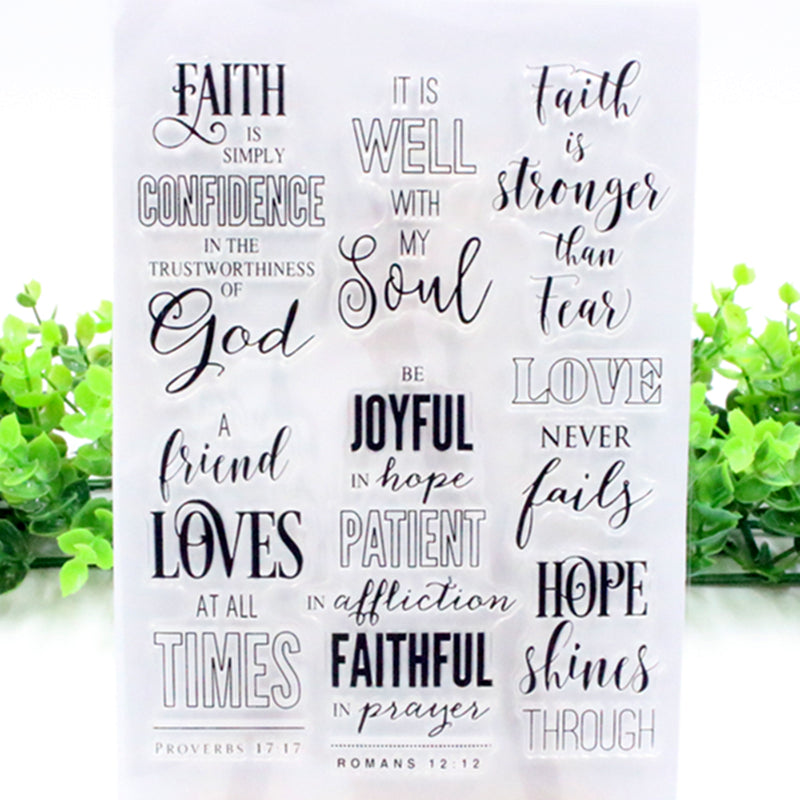 FAITH
IS
SIMPLY
CONFIDENCE
IN THE
TRUSTWORTHINESS
OF
God
A
friend
LOVES
AT ALL
TIMES
PROVERBS 17:17
IT IS
WELL
WITH
MY
Soul
BE
JOYFUL
IN hope
PATIENT
IN affliction
FAITHFUL
IN prayer
ROMANS 12:12
Faith
is
stronger
than
Fear
LOVE
NEVER
fails
HOPE
shines
THROUGH